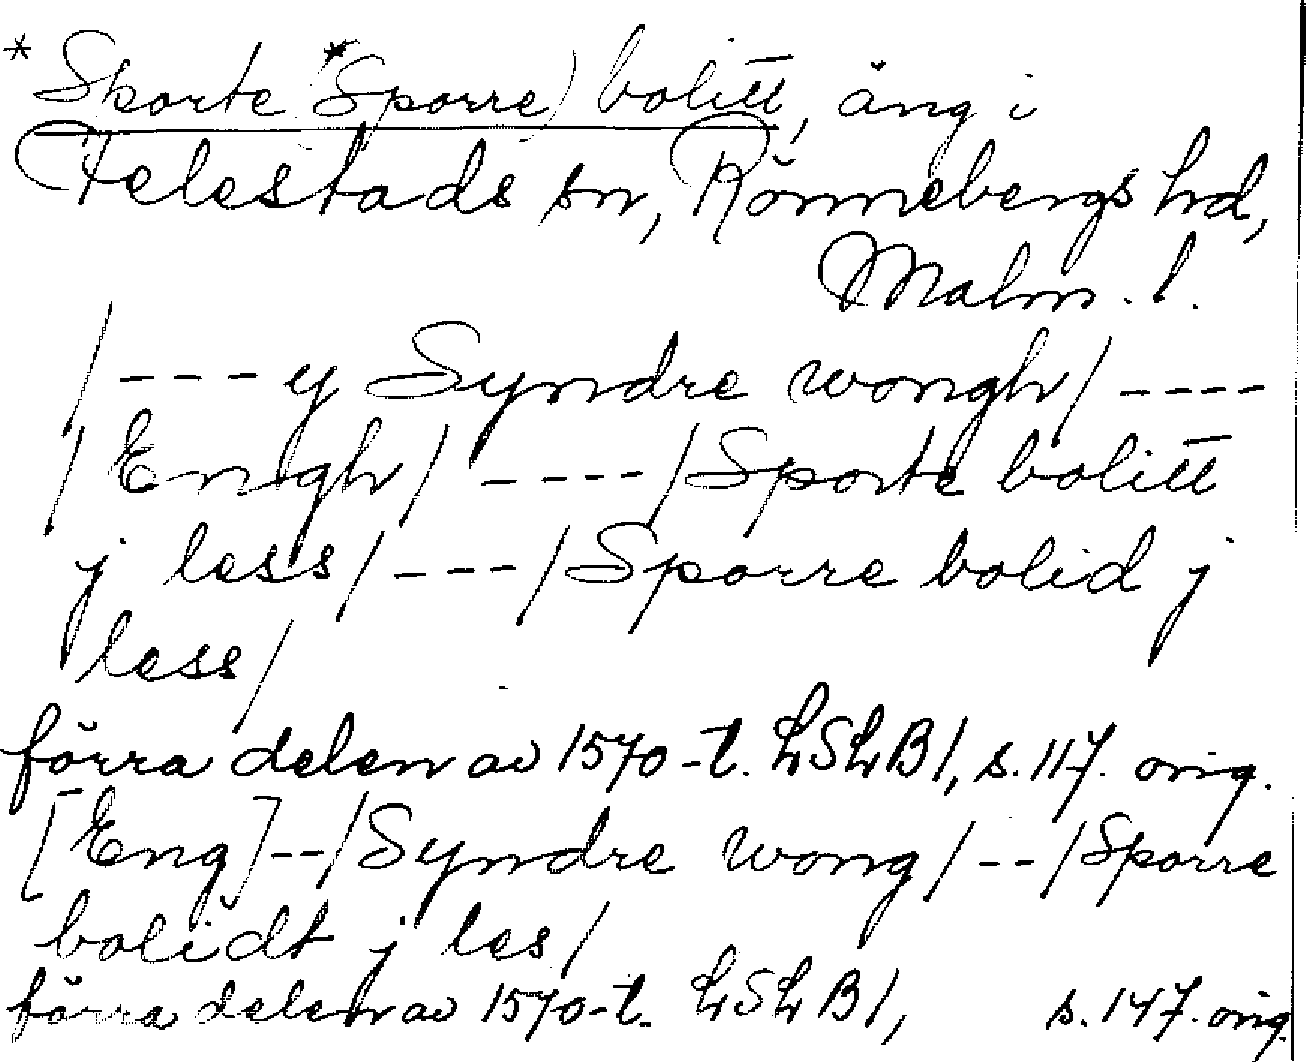 * Sporte (*Sporre) bolitt, äng i
Felestads sn, Rönnebergs hd,
Malm. l.
/---y Syndre wongh/----
/Engh/ ----/Sporte bolitt
j less/---/Sporre bolid j
less/
förra delen av 1570-t. LSLB1, s. 117. orig.
[Eng]--/Syndre wong/--/Sporre
bolidt j les/
förra delen av 1570-t. LSLB1, s. 147. orig.